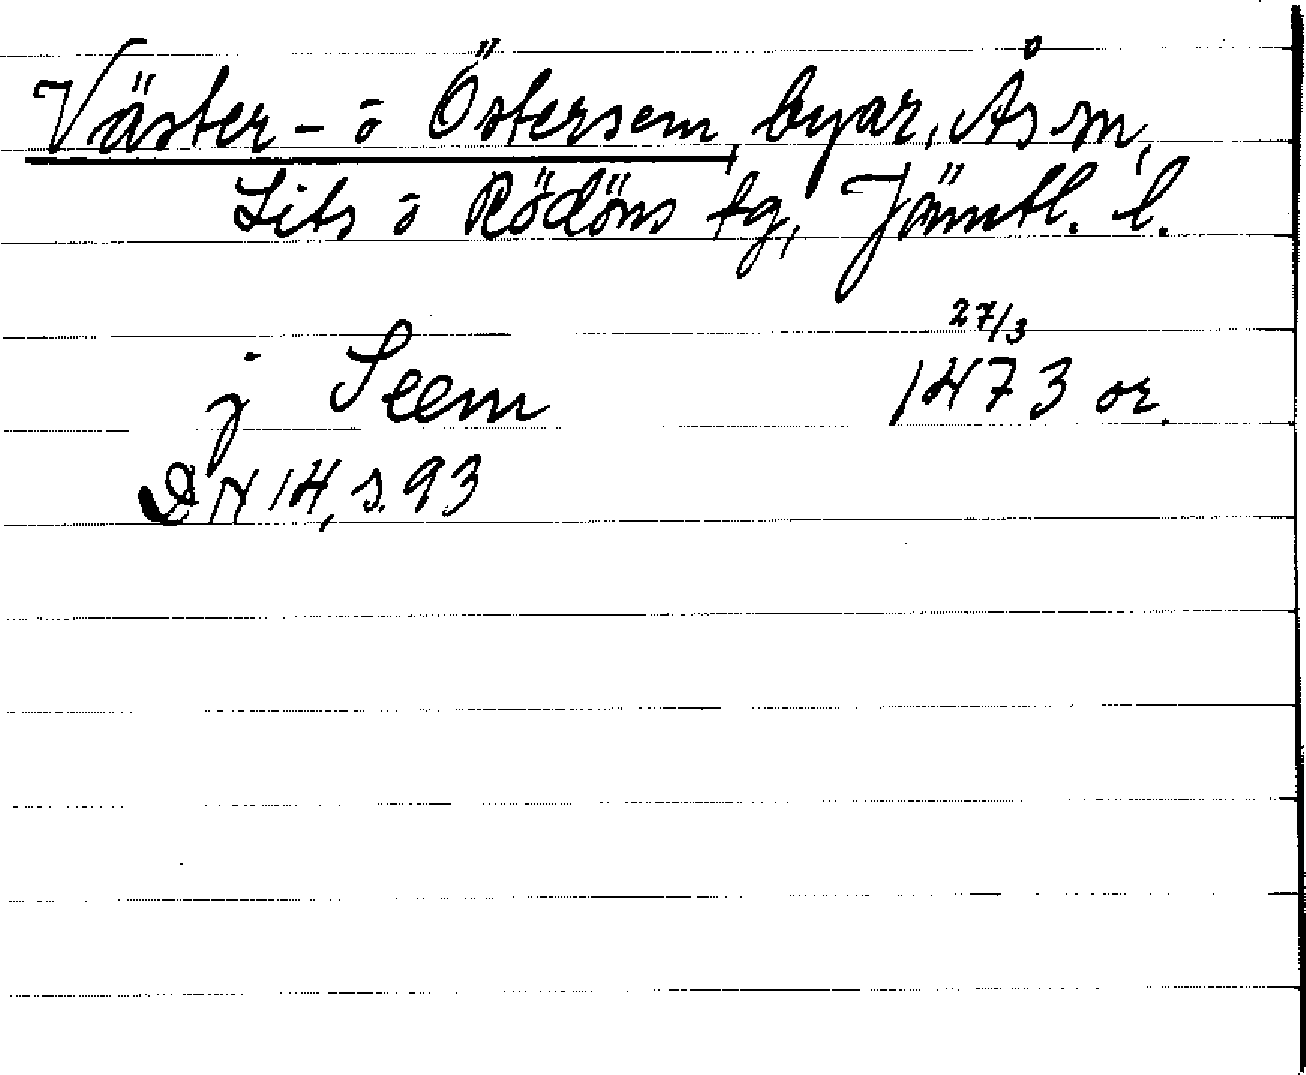 Väster- o Östersem, byar, Ås sn,
Lits o Rödöns tg, Jämtl. l.
27/3
j Seem 1473 or.
DN 14, s. 93